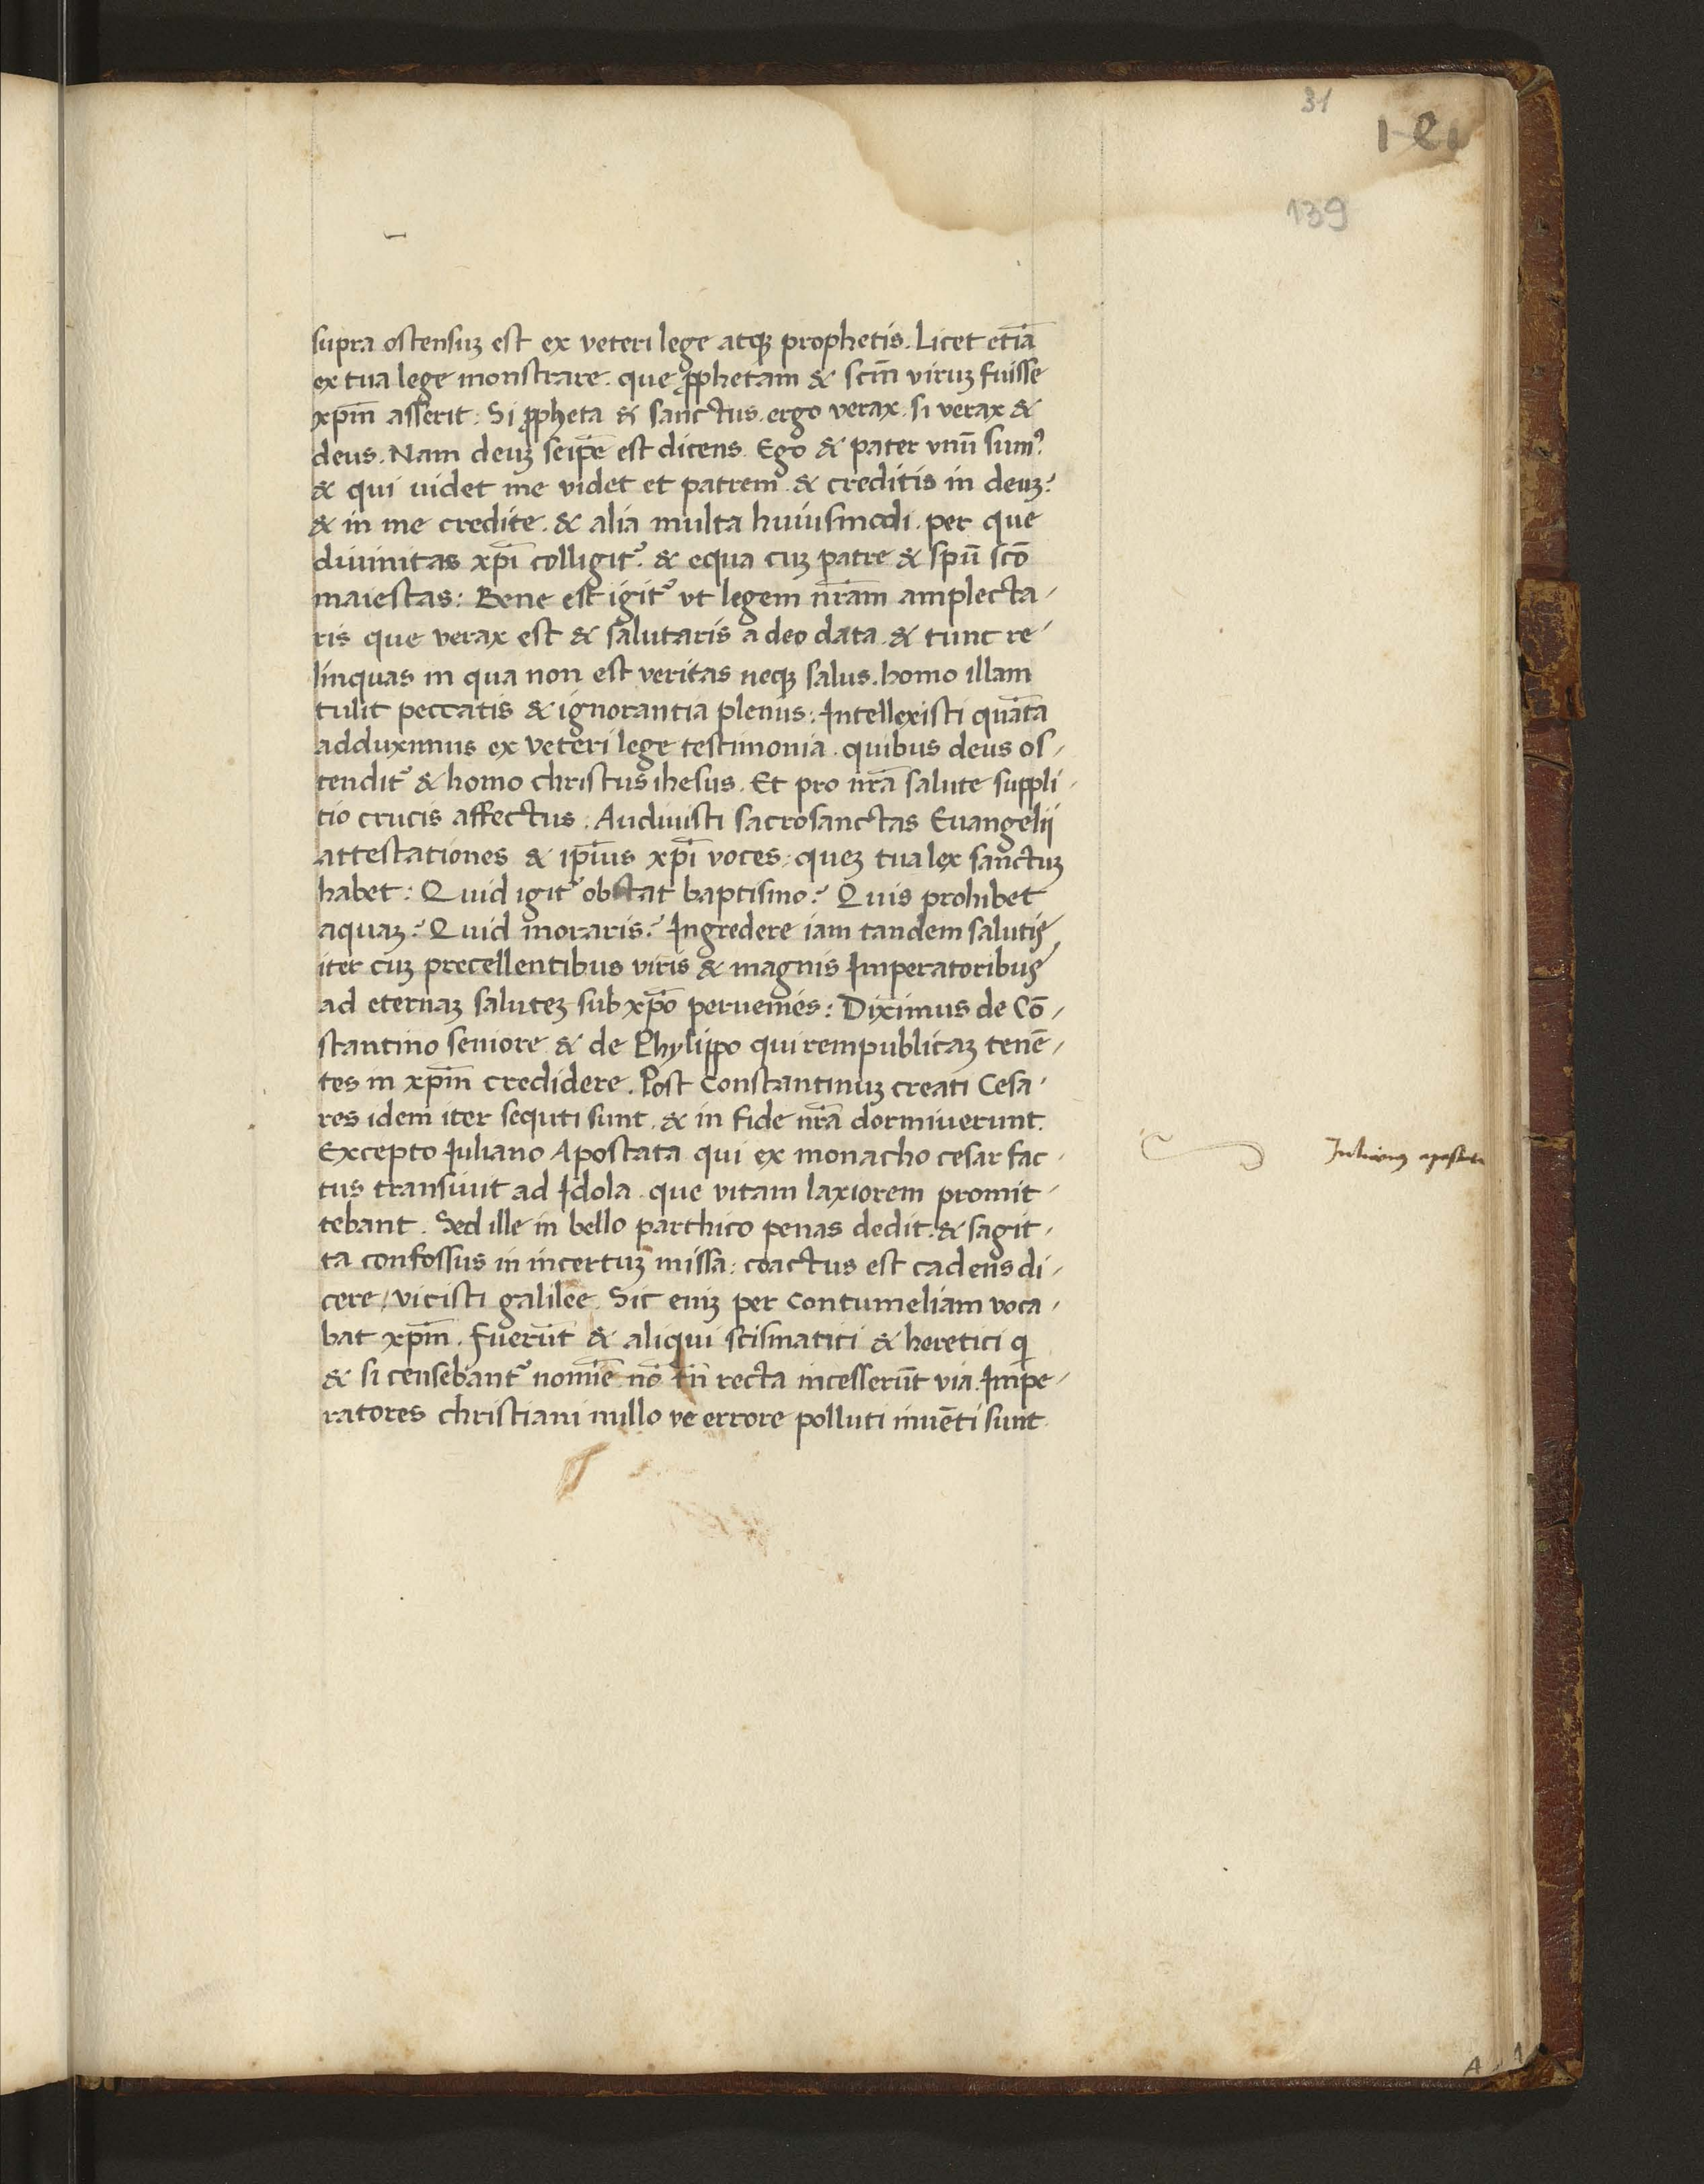 31
139
supra ostensuꝫ est ex veteri lege atqꝫ prophetis. Licet etiā
ex tua lege monstrare. que ꝓphetam & scm̄ viruꝫ fuisse
xpm̄ asserit: Si ꝓpheta & sanctus. ergo verax. si verax &
deus. Nam deuꝫ seip̄e est dicens. Ego & pater vnū sumꝰ
& qui uidet me videt et patrem & creditis in deuꝫ?
& in me credite. & alia multa huiusmodi. per que
diuinitas xp̄i colligit᷑. & equa cuꝫ patre & spū scō
maiestas: Bene est igit᷑ vt legem nr̄am amplecta-
ris que verax est & salutaris a deo data. & tunc re-
linquas in qua non est veritas neqꝫ salus. homo illam
tulit peccatis & ignorantia plenus: Intellexisti quāta
adduximus ex veteri lege testimonia. quibus deus os-
tendit᷑ & homo christus ihesus. Et pro nr̄a salute suppli-
cio crucis affectus: Audiuisti sacrosanctas Euangelij
attestationes & ip̄ius xp̄i voces: queꝫ tua lex sanctuꝫ
habet: Quid igit᷑ obstat baptismo? Quis prohibet
aquaꝫ? Quid moraris? Ingredere iam tandem salutis
iter cuꝫ precellentibus viris & magnis Imperatoribus
ad eternaꝫ saluteꝫ sub xp̄o peruenies: Diximus de Cō-
stantino seniore & de Phylippo qui rempublicaꝫ tenē-
tes in xpm̄ credidere. Post Constantinuꝫ creati Cesa-
res idem iter sequti sunt. & in fide nr̄a dormiuerunt.
Excepto Iuliano Apostata qui ex monacho cesar fac-
tus transiuit ad Idola. que vitam laxiorem promit-
tebant. Sed ille in bello parthico penas dedit. & sagit-
ta confossus in incertuꝫ missa: coactus est cadens di-
cere / vicisti galilee. Sic eniꝫ per contumeliam voca-
bat xpm̄. fuerūt & aliqui scismatici & heretici qi
& si censebant᷑ nomīe nō tn̄ recta incesserūt via. Impe-
ratores christiani nullo ve errore polluti inuēti sunt
Iulianus apostata